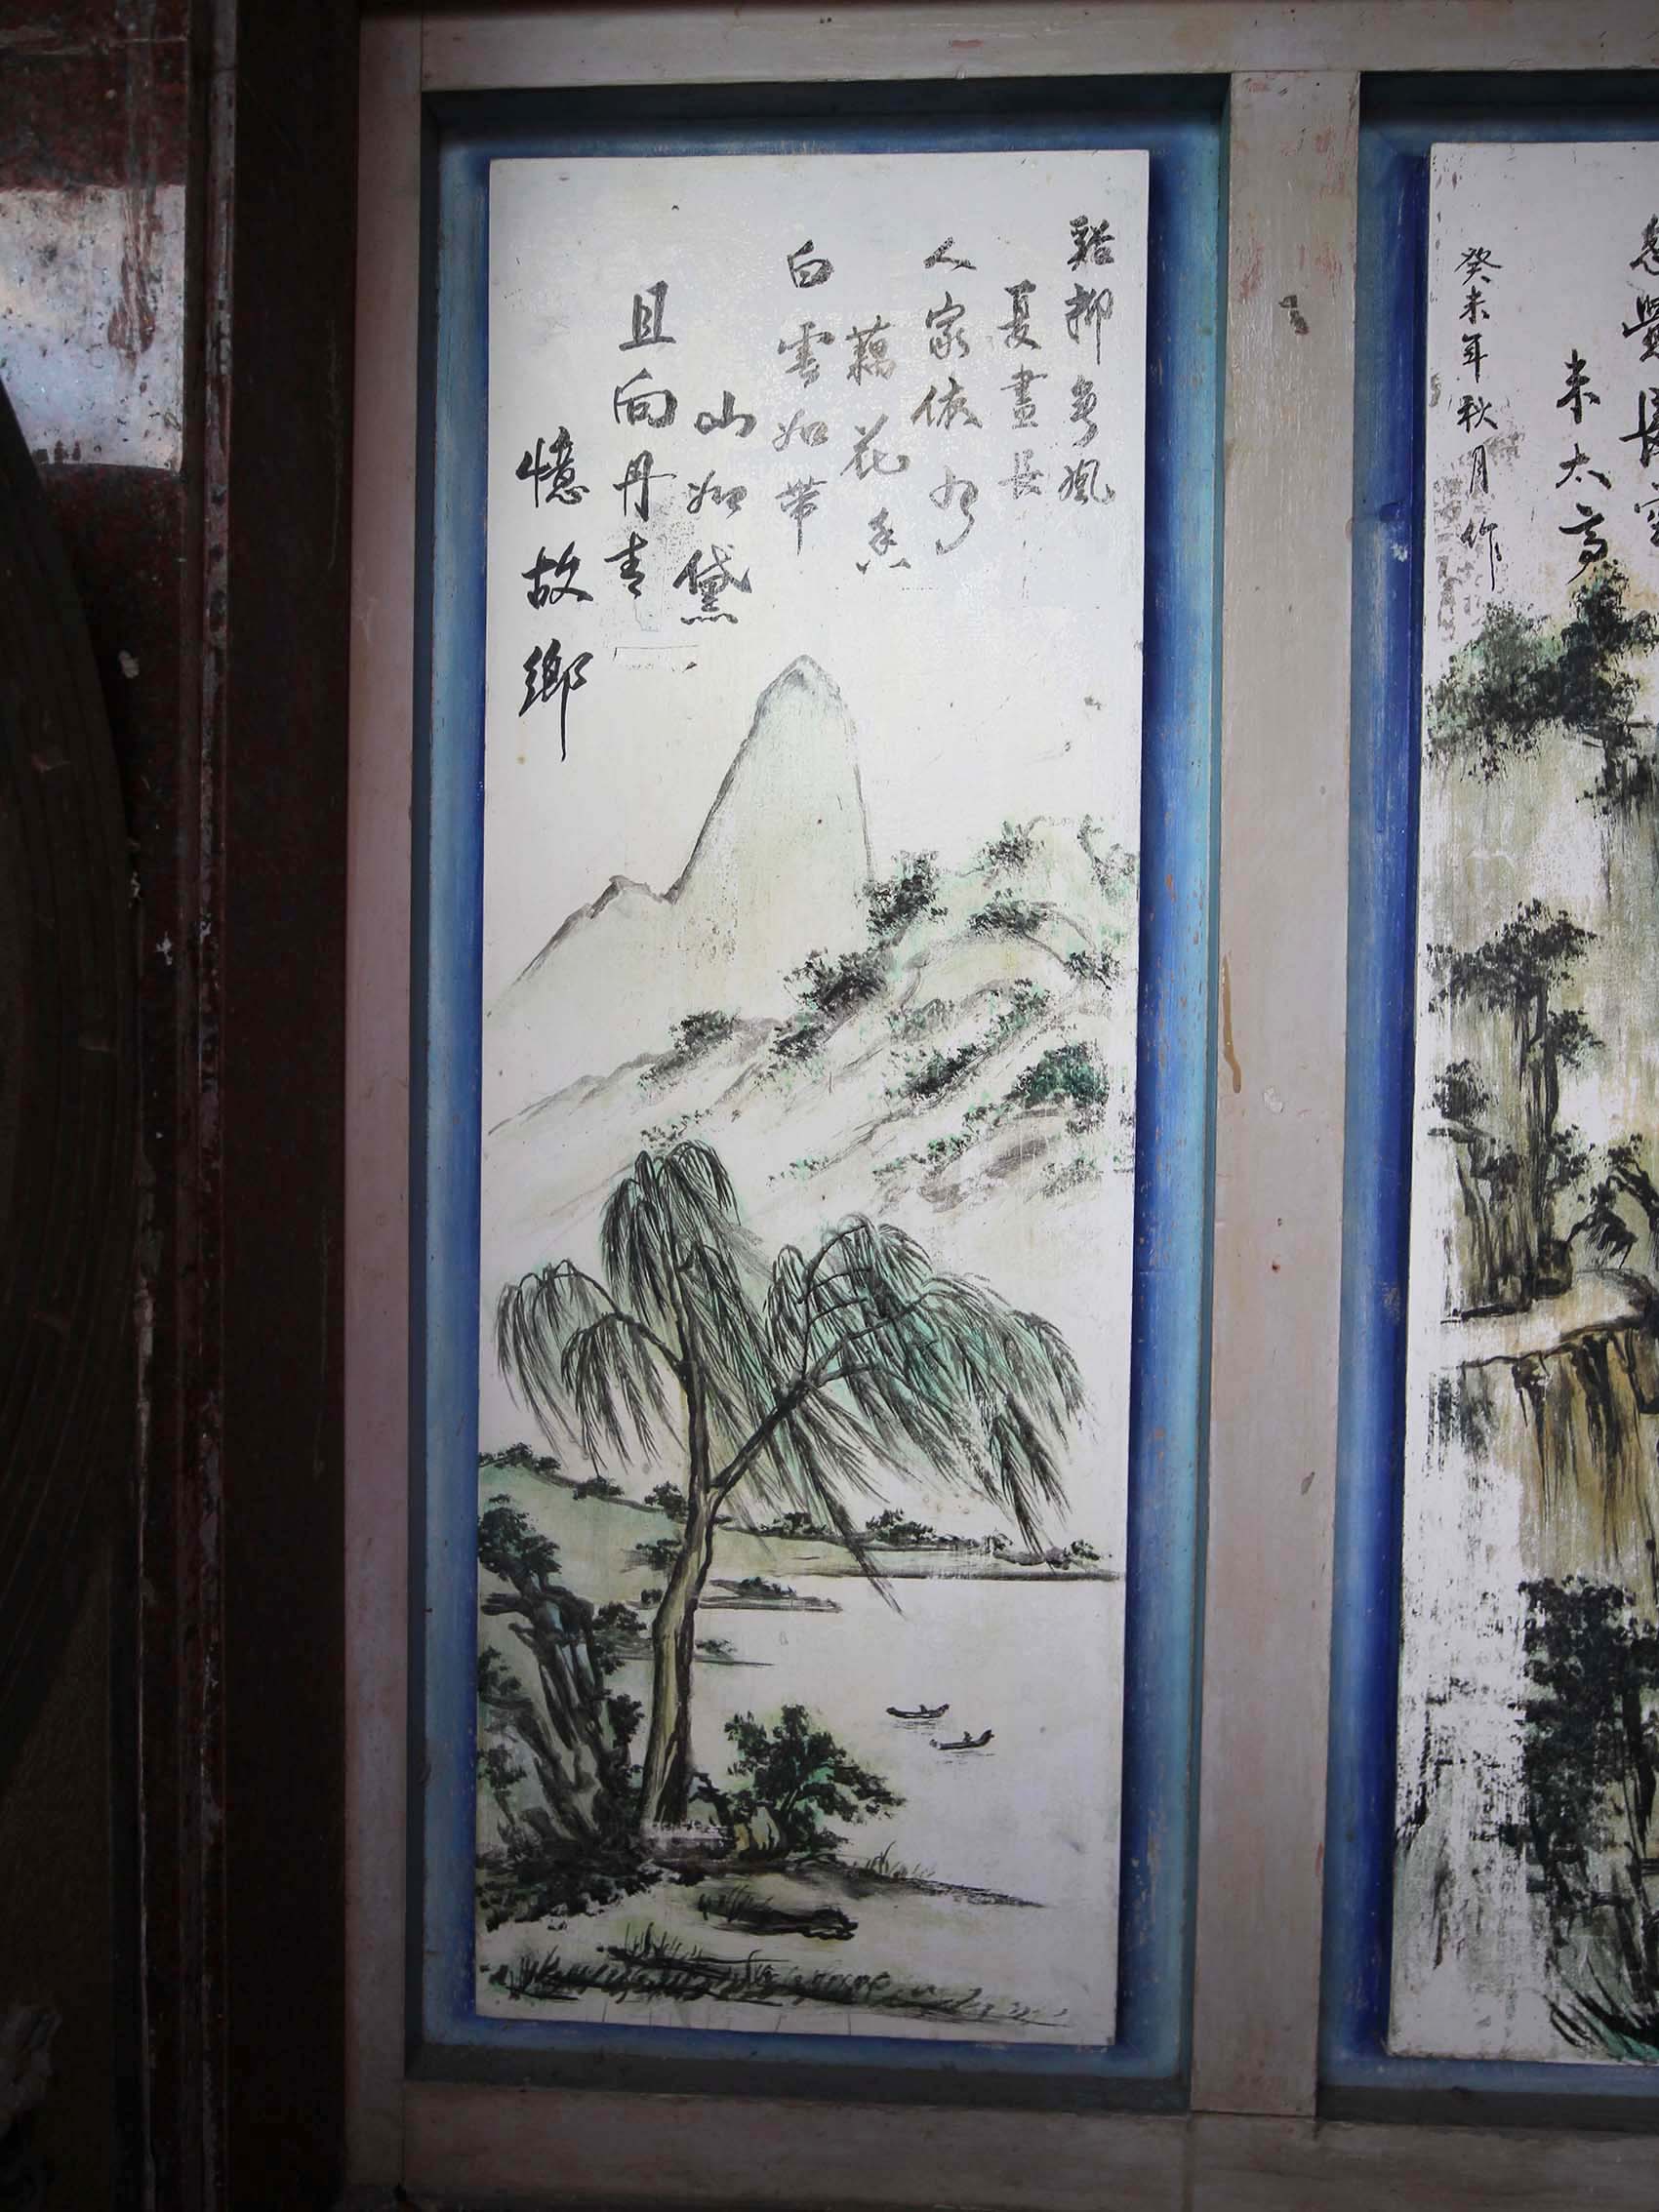 覺長空
未太高
癸未年秋月作
谿柳風
夏晝長
人家依約
藕花香
白雲如帶
山如黛
且向丹青
憶故鄉